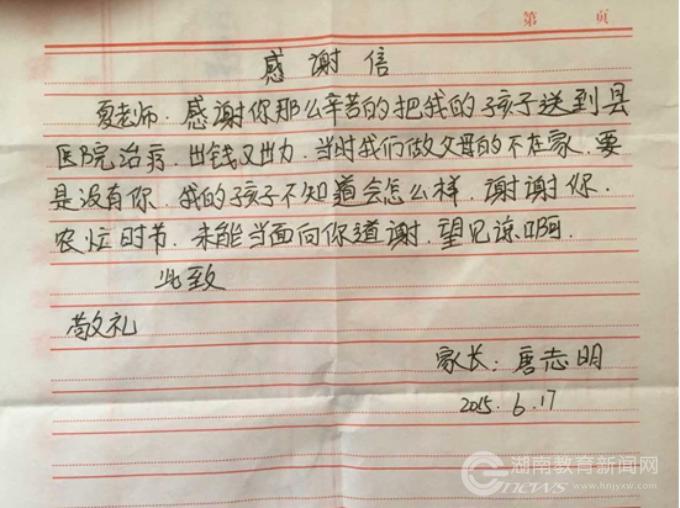 第 页
感谢信
夏老师.感谢你那么辛苦的把我的孩子送到县
医院治疗.出钱又出力.当时我们做父母的不在家.要
是没有你.我的孩子不知道会怎么样.谢谢你.
农忙时节.未能当面向你道谢.望见谅啊.
此致
敬礼
家长:唐志明
2015.6.17
湖南教育新闻网
Cnews www.hnjyxw.com